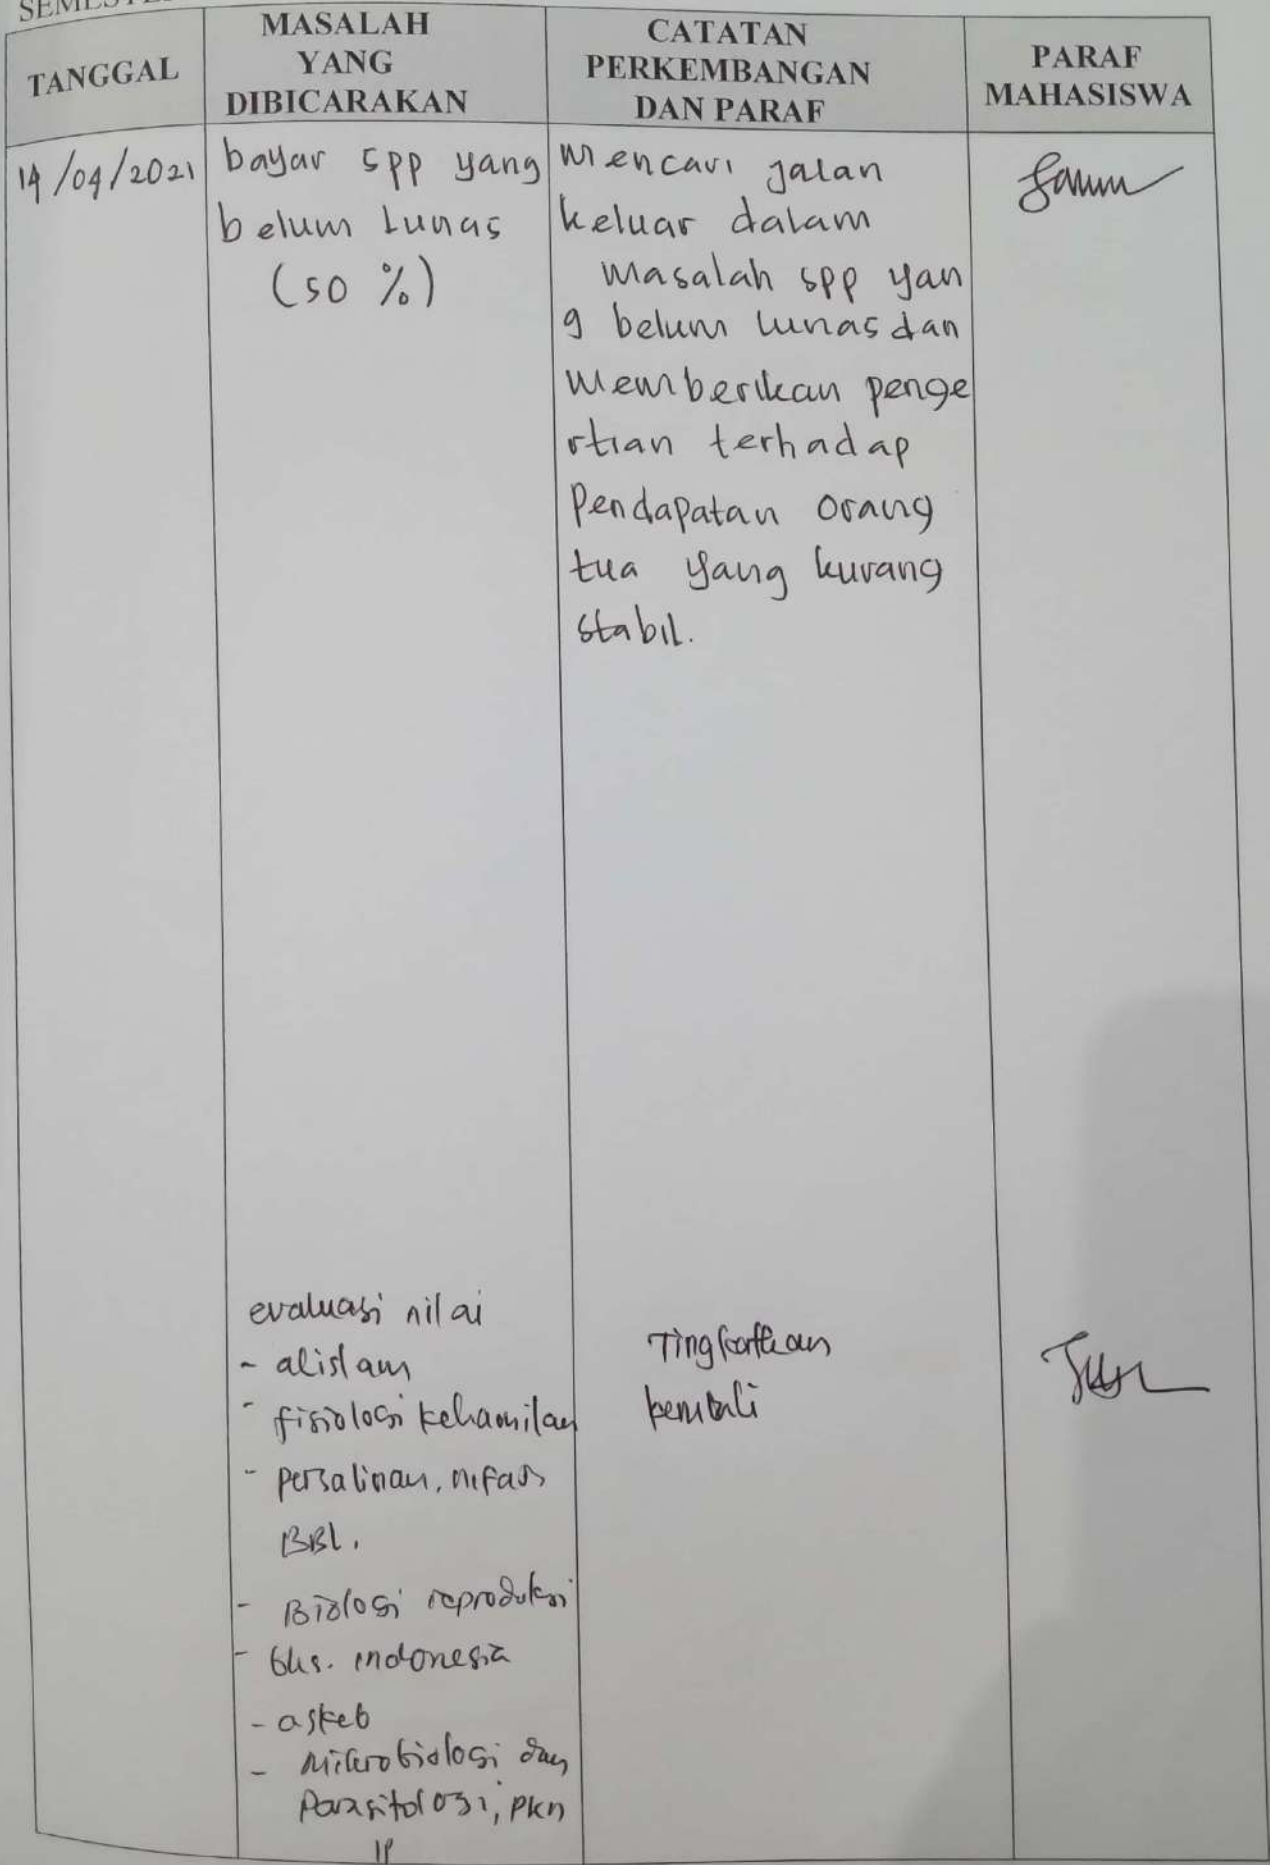 TANGGAL
MASALAH
YANG
DIBICARAKAN
CATATAN
PERKEMBANGAN
DAN PARAF
PARAF
MAHASISWA
14/04/2021
bayar spp yang
belum Lunas
(50 %)
Mencari jalan
keluar dalam
masalah spp yan
g belum lunas dan
memberikan penge
rtian terhadap
Pendapatan orang
tua yang kurang
stabil.
evaluasi nilai
- alislam
- fisiologi kehamilan
- persalinan, nifas
BBL.
- Biologi reproduksi
- bhs. indonesia
- askeb
- Mikrobiologi dan
Parasitologi, PKn
Tingkatkan
kembali